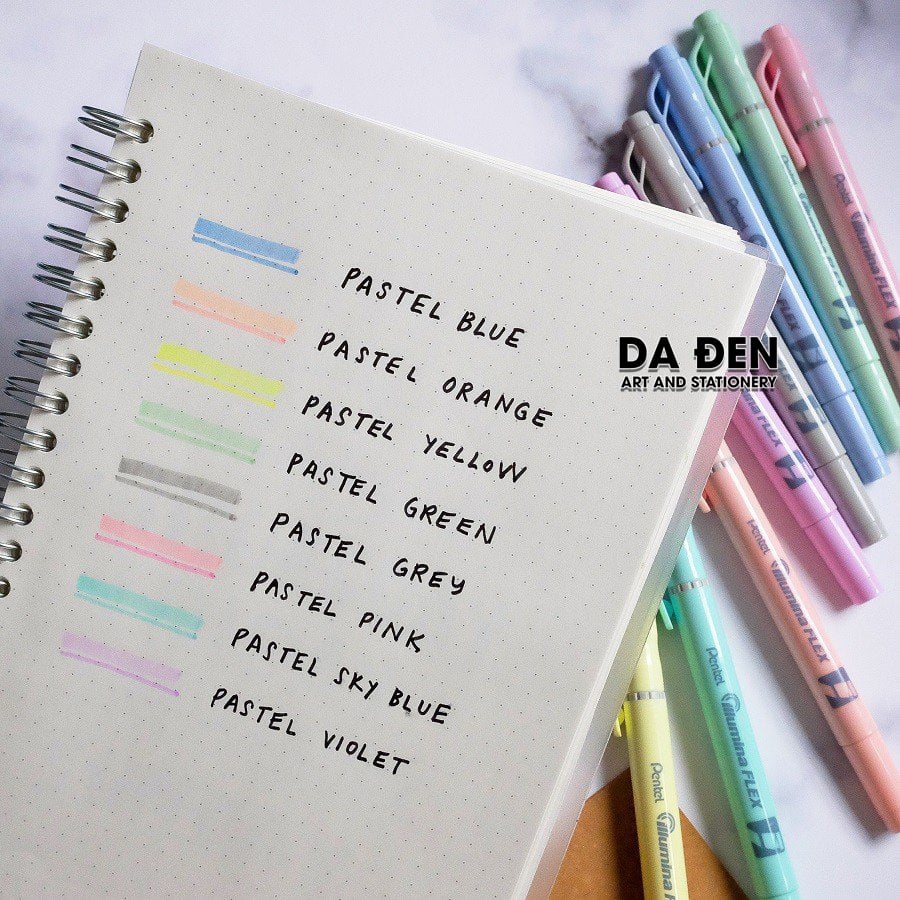 PASTEL BLUE
PASTEL ORANGE
PASTEL YELLOW
PASTEL GREEN
PASTEL GREY
PASTEL PINK
PASTEL SKY BLUE
PASTEL VIOLET
DA ĐEN
ART AND STATIONERY
Pentel illumina FLEX
Pentel
Pentel illumina FLEX
FLEX
illumina FLEX
Pentel illumina FLEX
Pentel illumina FLEX
Pentel illumina FLEX